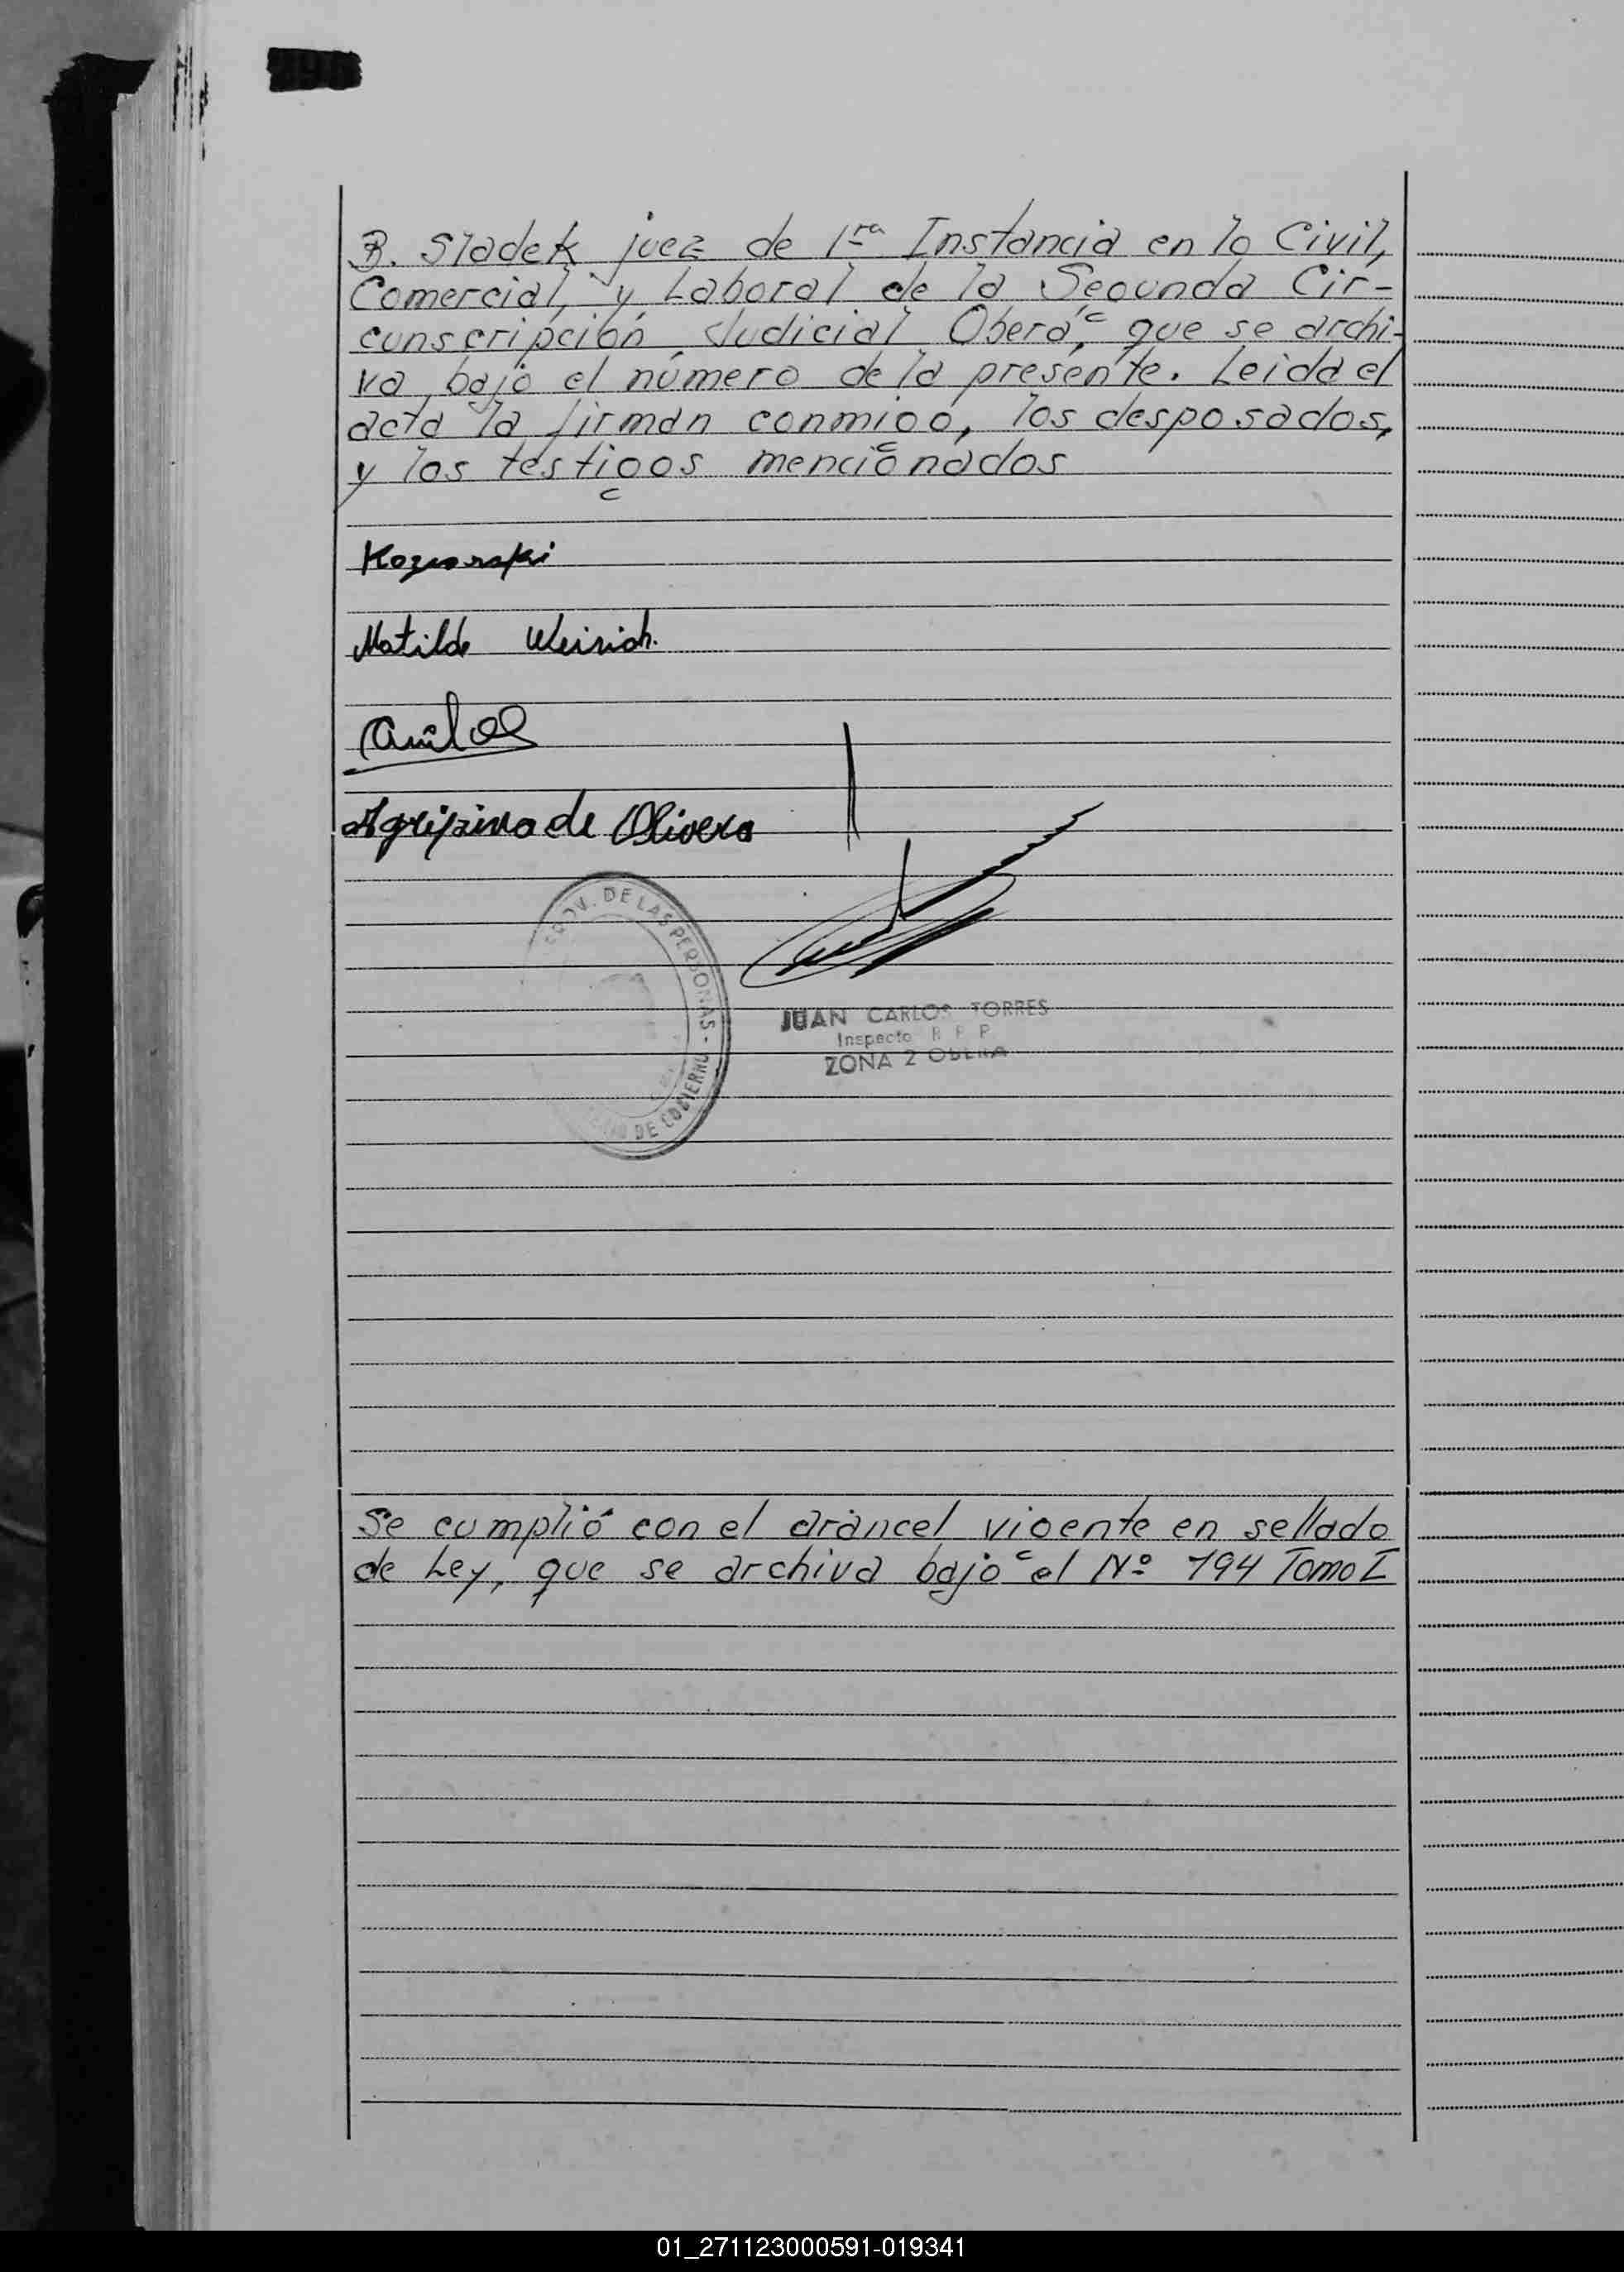 B. Sladek juez de 1ra Instancia en lo Civil,
Comercial, y Laboral de la Segunda Cir-
cunscripción Judicial Oberá, que se archi-
va bajo el número de la presente. Leida el
acta la firman conmigo, los desposados,
y los testigos mencionados
Matilde Weirich.
Agripina de Olivera
DE LAS PERSONAS - DE GOBIERNO
JUAN CARLOS TORRES
Inspecto R P P
ZONA 2 OBERA
Se cumplió con el arancel vigente en sellado
de Ley, que se archiva bajo el Nº 194 Tomo I
01_271123000591-019341